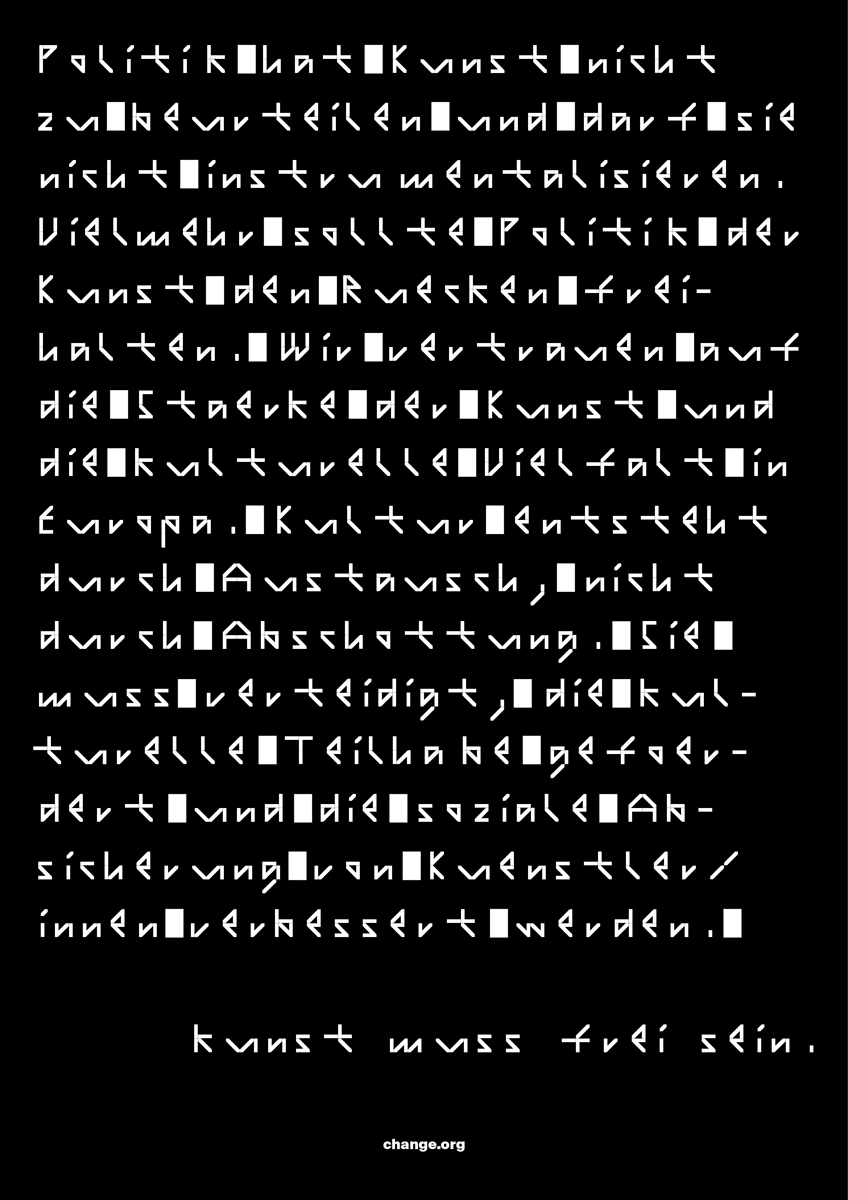 Politik hat Kunst nicht
zu beurteilen und darf sie
nicht instrumentalisieren.
Vielmehr sollte Politik der
Kunst den Ruecken frei-
halten. Wir vertrauen auf
die Staerke der Kunst und
die kulturelle Vielfalt in
Europa. Kultur entsteht
durch Austausch, nicht
durch Abschottung. Sie
muss verteidigt, die kul-
turelle Teilhabe gefoer-
dert und die soziale Ab-
sicherung von Kuenstler/
innen verbessert werden.
kunst muss frei sein.
change.org